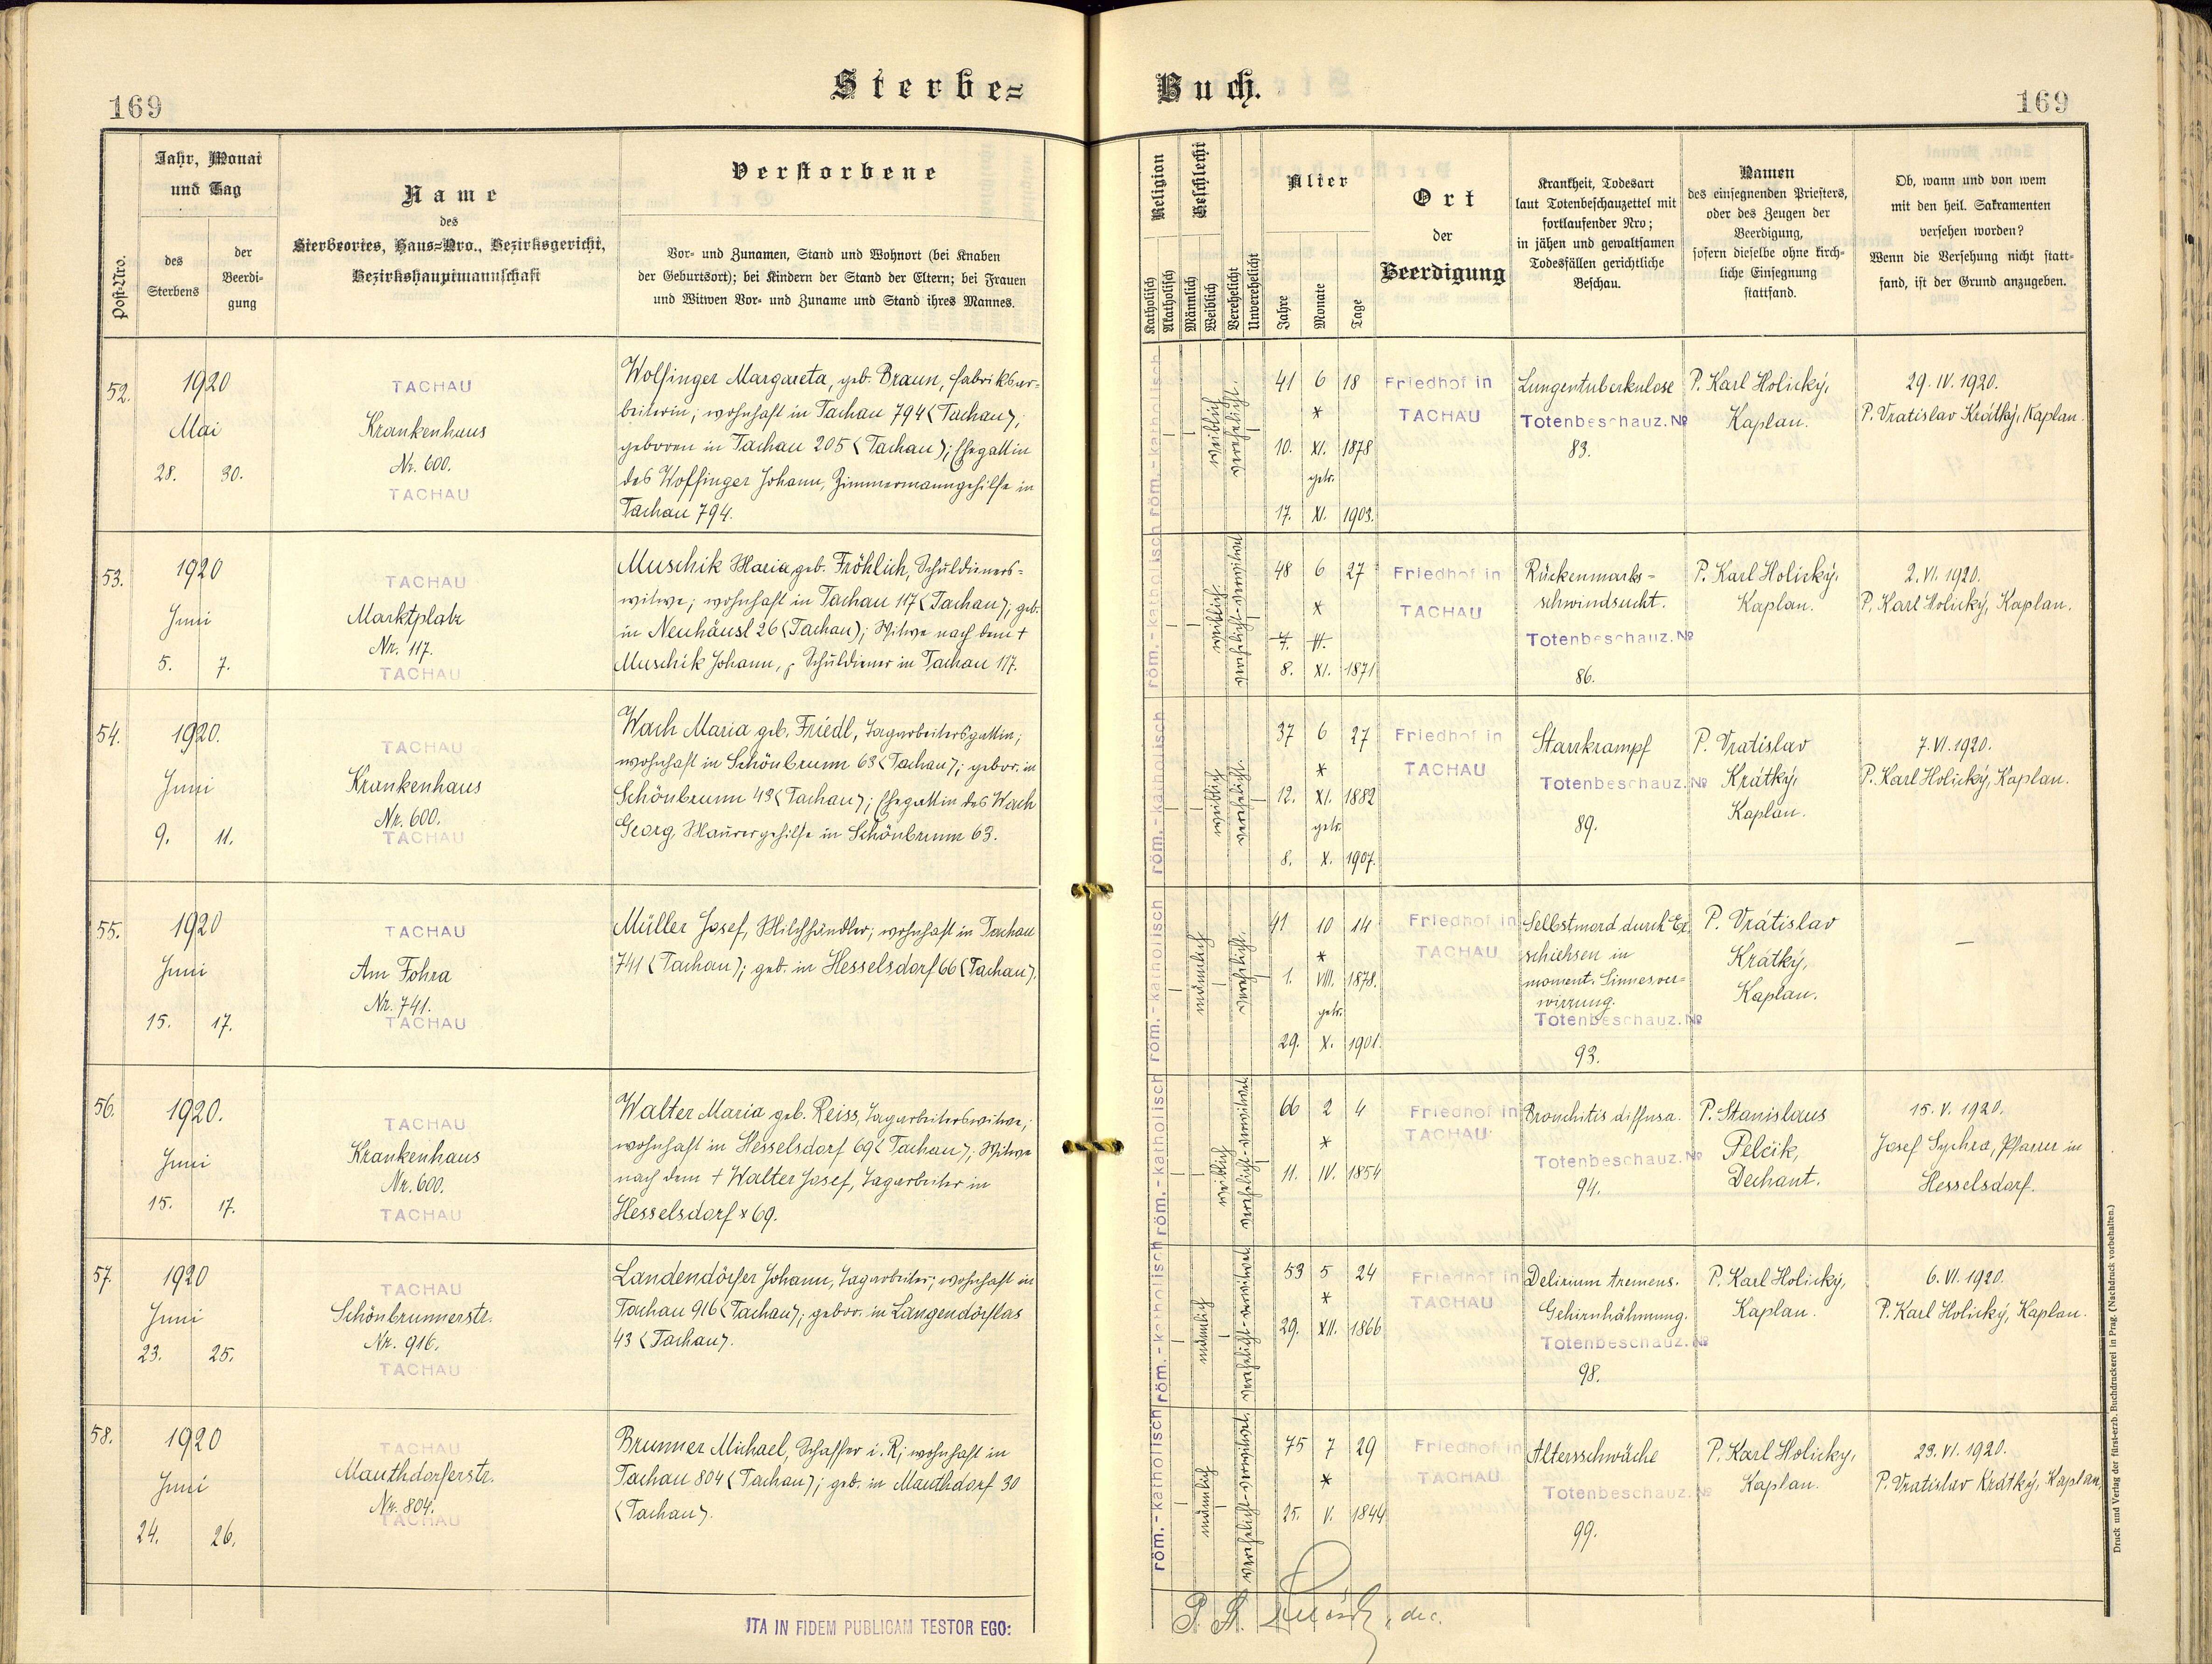 169
Sterbe=
Jahr, Monat
und Tag
Post-Nro.
des
Sterbens
der
Beerdi-
gung
Name
des
Sterbeortes, Haus=Nro., Bezirksgericht,
Bezirkshauptmannschaft
Verstorbene
Vor- und Zunamen, Stand und Wohnort (bei Knaben
der Geburtsort); bei Kindern der Stand der Eltern; bei Frauen
und Witwen Vor- und Zuname und Stand ihres Mannes.
52.
1920
Mai
28. 30.
TACHAU
Krankenhaus
Nr. 600.
TACHAU
Wolfinger Margareta, geb. Braun, Fabriksar-
beiterin; wohnhaft in Tachau 794 (Tachau);
geboren in Tachau 205 (Tachau); Ehegattin
des Wolfinger Johann, Zimmermanngehilfe in
Tachau 794.
53.
1920
Juni
5. 7.
TACHAU
Marktplatz
Nr. 117.
TACHAU
Muschik Maria geb. Fröhlich, Schuldieners-
witwe; wohnhaft in Tachau 117 (Tachau); geb.
in Neuhäusl 26 (Tachau); Witwe nach dem †
Muschik Johann, Schuldiener in Tachau 117.
54.
1920.
Juni
9. 11.
TACHAU
Krankenhaus
Nr. 600.
TACHAU
Wach Maria geb. Friedl, Tagarbeitersgattin;
wohnhaft in Schönbrunn 63 (Tachau); gebor. in
Schönbrunn 43 (Tachau); Ehegattin des Wach
Georg, Maurergehilfe in Schönbrunn 63.
55.
1920
Juni
15. 17.
TACHAU
Am Fohra
Nr. 741.
TACHAU
Müller Josef, Milchhändler; wohnhaft in Tachau
741 (Tachau); geb. in Hesselsdorf 66 (Tachau).
56.
1920.
Juni
15. 17.
TACHAU
Krankenhaus
Nr. 600.
TACHAU
Walter Maria geb. Reiss, Tagarbeiterswitwe;
wohnhaft in Hesselsdorf 69 (Tachau); Witwe
nach dem † Walter Josef, Tagarbeiter in
Hesselsdorf * 69.
57.
1920
Juni
23. 25.
TACHAU
Schönbrunnerstr.
Nr. 916.
TACHAU
Landendörfer Johann, Tagarbeiter; wohnhaft in
Tachau 916 (Tachau); gebor. in Langendörflas
43 (Tachau).
58.
1920
Juni
24. 26.
TACHAU
Mauthdorferstr.
Nr. 804.
TACHAU
Brunner Michael, Schaffer i. R; wohnhaft in
Tachau 804 (Tachau); geb. in Mauthdorf 30
(Tachau).
ITA IN FIDEM PUBLICAM TESTOR EGO:
Buch.
169
Religion
Geschlecht
Katholisch
Akatholisch
Männlich
Weiblich
Verehelicht
Unverehelicht
Alter
Jahre
Monate
Tage
Ort
der
Beerdigung
Krankheit, Todesart
laut Totenbeschauzettel mit
fortlaufender Nro;
in jähen und gewaltsamen
Todesfällen gerichtliche
Beschau.
Namen
des einsegnenden Priesters,
oder des Zeugen der
Beerdigung,
sofern dieselbe ohne kirch-
liche Einsegnung
stattfand.
Ob, wann und von wem
mit den heil. Sakramenten
versehen worden?
Wenn die Versehung nicht statt-
fand, ist der Grund anzugeben.
röm.-katholisch
weiblich
verehelicht.
41 6 18
*
10. XI. 1878
getr.
17. XI. 1903.
Friedhof in
TACHAU
Lungentuberkulose
Totenbeschauz. No
83.
P. Karl Holický,
Kaplan.
29. IV. 1920.
P. Vratislav Krátký, Kaplan.
röm.-katholisch
weiblich.
verehelicht-verwitwet
48 6 27
*
7. VI.
8. XI. 1871
Friedhof in
TACHAU
Rückenmarks-
schwindsucht.
Totenbeschauz. No
86.
P. Karl Holický.
Kaplan.
2. VI. 1920.
P. Karl Holický, Kaplan.
röm.-katholisch
weiblich
verehelicht.
37 6 27
*
12. XI. 1882
getr.
8. X. 1907.
Friedhof in
TACHAU
Starrkrampf
Totenbeschauz. No
89.
P. Vratislav
Krátký,
Kaplan.
7. VI. 1920.
P. Karl Holický, Kaplan.
röm.-katholisch
männlich
verehelicht.
41 10 14
*
1. VIII. 1878.
getr.
29. X. 1901.
Friedhof in
TACHAU
Selbstmord durch Er-
schiehsen in
moment. Sinnesver-
wirrung.
Totenbeschauz. No
93.
P. Vrátislav
Krátký,
Kaplan.
—
röm.-katholisch
weiblich
verehelicht-verwitwet
66 2 4
*
11. IV. 1854
Friedhof in
TACHAU
Bronchitis diffusa.
Totenbeschauz. No
94.
P. Stanislaus
Pelčik,
Dechant.
15. V. 1920.
Josef Sychra, Pfarrer in
Hesselsdorf.
röm.-katholisch
männlich
verehelicht-verwitwet
53 5 24
*
29. XII. 1866
Friedhof in
TACHAU
Delirium tremens.
Gehirnhähmung.
Totenbeschauz. No
98.
P. Karl Holický,
Kaplan.
6. VI. 1920.
P. Karl Holický, Kaplan.
röm.-katholisch
männlich
verehelicht-verwitwet.
75 7 29
*
25. V. 1844
Friedhof in
TACHAU
Altersschwäche
Totenbeschauz. No
99.
P. Karl Holický,
Kaplan.
23. VI. 1920.
P. Vratislav Krátký, Kaplan,
P. St. dec.
Druck und Verlag der fürst-erzb. Buchdruckerei in Prag. (Nachdruck vorbehalten.)